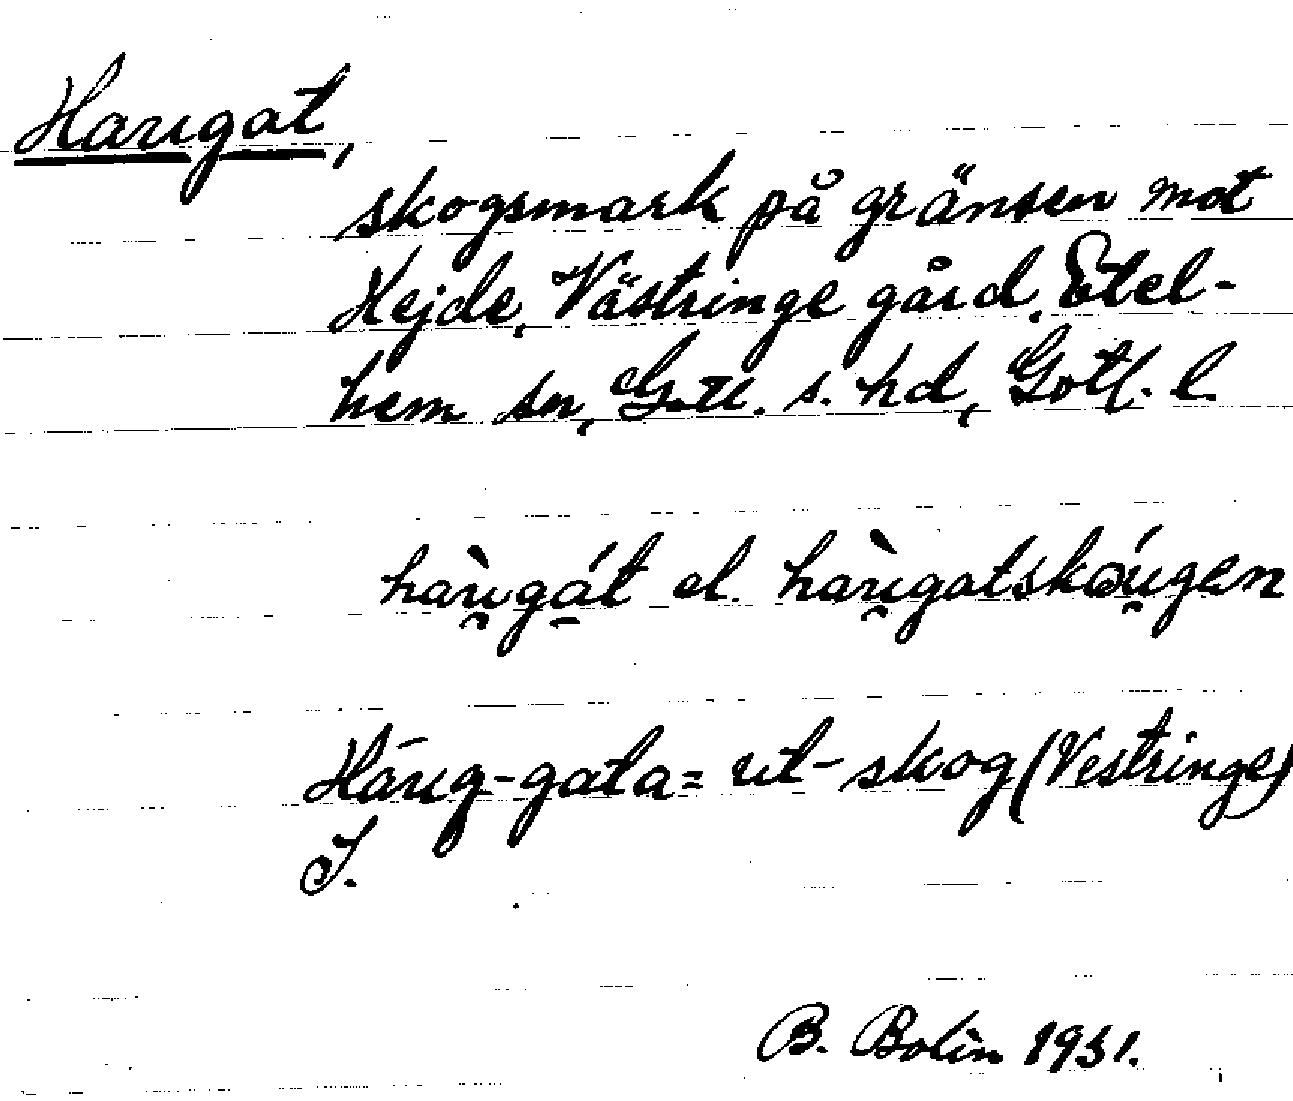 Haugat,
skogsmark på gränsen mot
Hejde, Västringe gård, Etel-
hem sn, Gotl. s. hd, Gotl. l.
haù̯gá̠t el. haù̯gatskåú̯gen
Háug-gata = ut-skog (Vestringe)
J.
B. Bolin 1931.